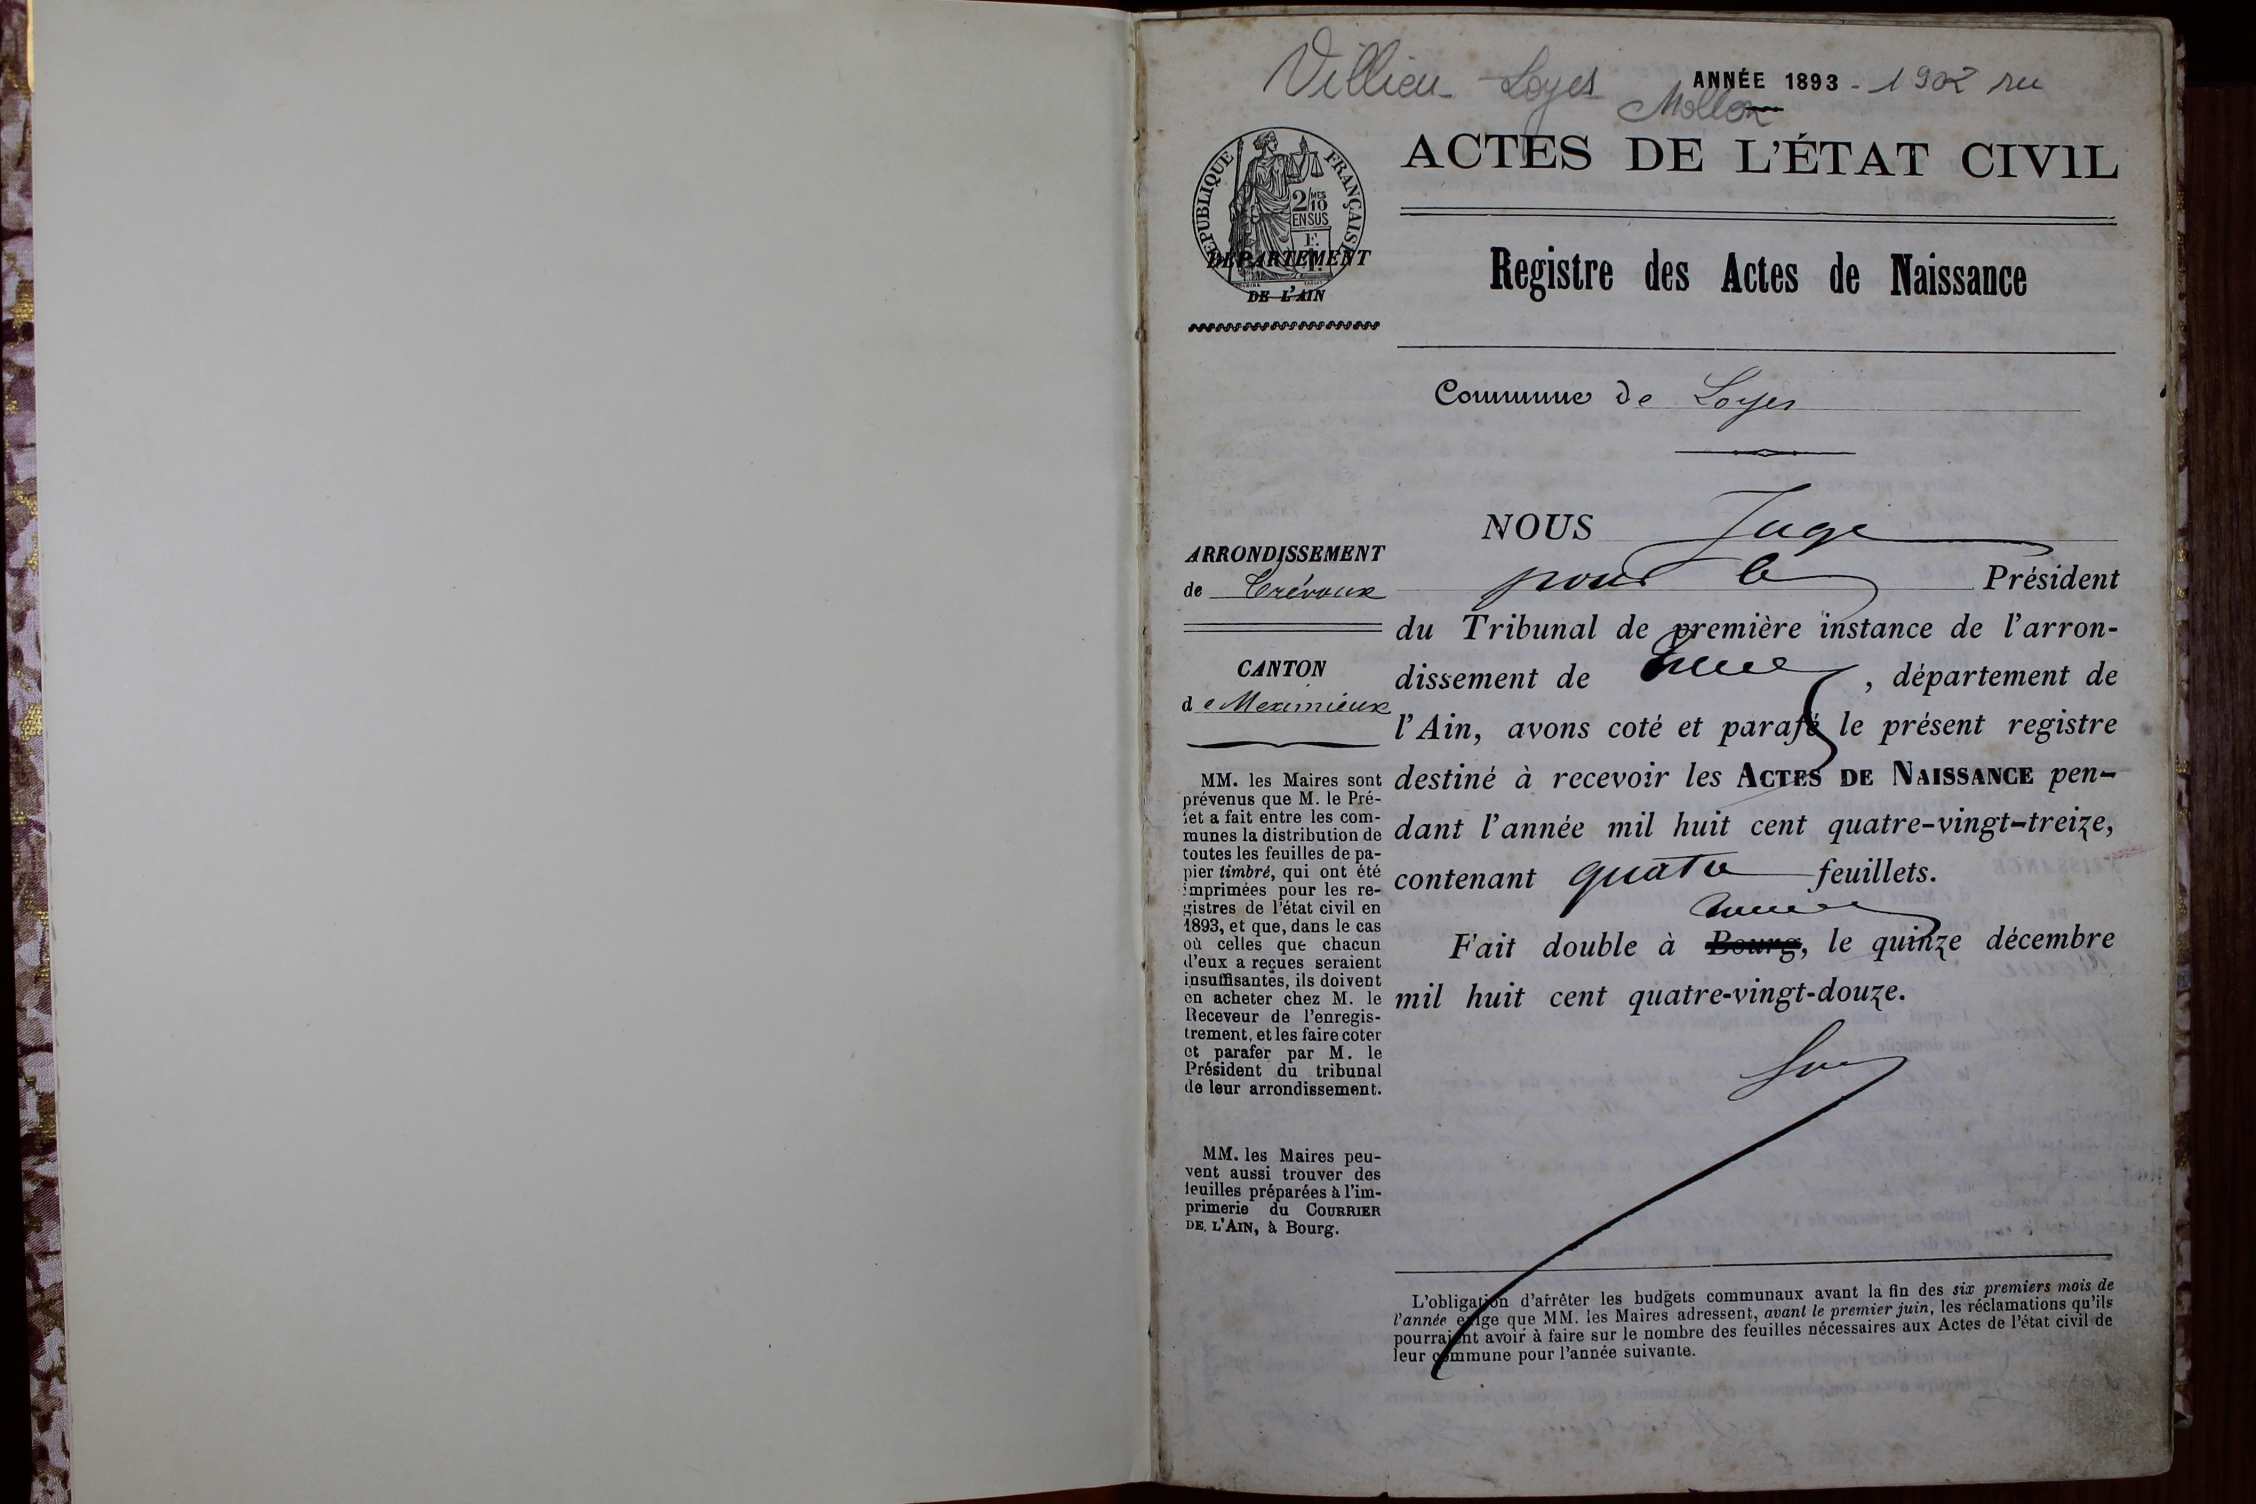 Villieu - Loyes
Mollon
ANNÉE 1893 - 1902
ACTES DE L'ÉTAT CIVIL
RÉPUBLIQUE FRANÇAISE
2/10 MES
EN SUS
DÉPARTEMENT
DE L'AIN
Registre des Actes de Naissance
Commune de Loyes
ARRONDISSEMENT
de Trévoux
CANTON
de Meximieux
MM. les Maires sont
prévenus que M. le Pré-
fet a fait entre les com-
munes la distribution de
toutes les feuilles de pa-
pier timbré, qui ont été
imprimées pour les re-
gistres de l'état civil en
1893, et que, dans le cas
où celles que chacun
d'eux a reçues seraient
insuffisantes, ils doivent
en acheter chez M. le
Receveur de l'enregis-
trement, et les faire coter
et parafer par M. le
Président du tribunal
de leur arrondissement.
MM. les Maires peu-
vent aussi trouver des
feuilles préparées à l'im-
primerie du COURRIER
DE L'AIN, à Bourg.
NOUS Juge
pour le Président
du Tribunal de première instance de l'arron-
dissement de , département de
l'Ain, avons coté et parafé le présent registre
destiné à recevoir les ACTES DE NAISSANCE pen-
dant l'année mil huit cent quatre-vingt-treize,
contenant quatre feuillets.
Fait double à Bourg, le quinze décembre
mil huit cent quatre-vingt-douze.
L'obligation d'arrêter les budgets communaux avant la fin des six premiers mois de
l'année exige que MM. les Maires adressent, avant le premier juin, les réclamations qu'ils
pourraient avoir à faire sur le nombre des feuilles nécessaires aux Actes de l'état civil de
leur commune pour l'année suivante.